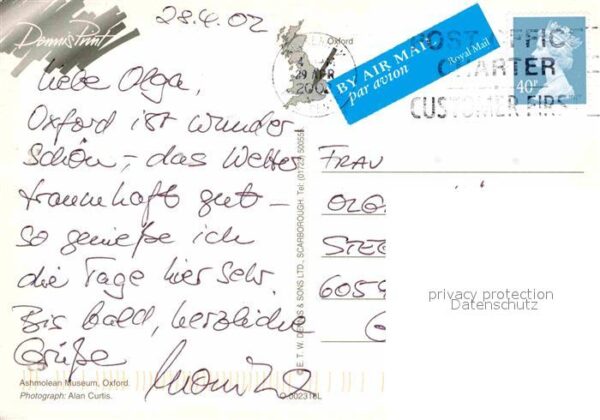 28.4.02
Dennis Print
Liebe Olga,
Oxford ist wunder
schön, – das Wetter
traumhaft gut –
so genieße ich
die Tage hier sehr.
Bis bald, herzliche
Grüße
Ashmolean Museum, Oxford.
Photograph: Alan Curtis.
Oxford
BY AIR MAIL
par avion
Royal Mail
POST OFFIC
CHARTER
CUSTOMER FIRS
40P
29 APR
200
© E. T. W. DENNIS & SONS LTD., SCARBOROUGH. Tel: (01723) 500555
O.002318L
FRAU
OLG
STE
6059
G
privacy protection
Datenschutz